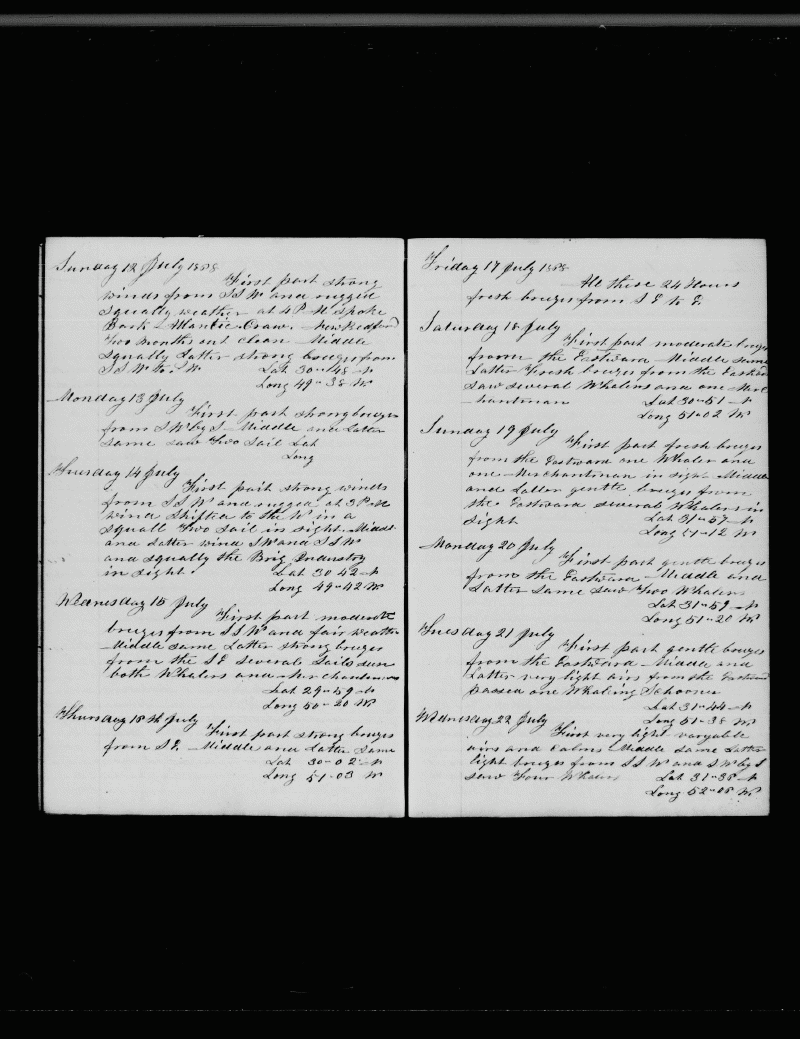 Sunday 12 July 1868
First part strong
winds from S S W and rugged
squally weather at 4 P M spoke
Bark Atlantic New Bedford
two months out clean Middle
squally Latter strong breezes from
S S W to S W Lat 30"48 N
Long 49"38 W
Monday 13 July
First part strong breezes
from S W by S Middle and Latter
same saw Two Sail Lat
Long
Tuesday 14 July
First part strong winds
from S S W and rugged at 3 P M
wind shifted to the W in a
squall Two sail in sight Middle
and Latter wind S W and S S W
and squally the Brig Industry
in sight Lat 30 42 N
Long 49"42 W
Wednesday 15 July
First part moderate
brezes from S S W and fair weather
Middle same Latter strong brezes
from the S E several Sails seen
both Whalers and Merchantmen
Lat 29"59 N
Long 50"20 W
Thursday 16 th July
First part strong brezes
from S E Middle and Latter Same
Lat 30"02 N
Long 51"03 W
Friday 17 July 1868
All these 24 Hours
fresh brezes from S E to E
Saturday 18 July
First part moderate brezes
from the Eastward Middle same
Latter Fresh brezes from the Eastward
saw several Whalers and one Mer
chantman Lat 30"51 N
Long 51"02 W
Sunday 19 July
First part fresh brezes
from the Eastward one Whaler and
one Merchantman in sight Middle
and Latter gentle brezes from
the Eastward several Whalers in
sight Lat 31"57 N
Long 51"12 W
Monday 20 July
First part gentle brezes
from the Eastward Middle and
Latter same saw Two Whalers
Lat 31"59 N
Long 51"20 W
Tuesday 21 July
First part gentle brezes
from the Eastward Middle and
Latter very light airs from the Eastward
passed one Whaling Schooner
Lat 31"44 N
Long 51"38 W
Wednesday 22 July
First very light varyable
airs and Calms Middle same Latter
light brezes from S S W and S W by S
saw Four Whalers Lat 31"38 N
Long 52"08 W